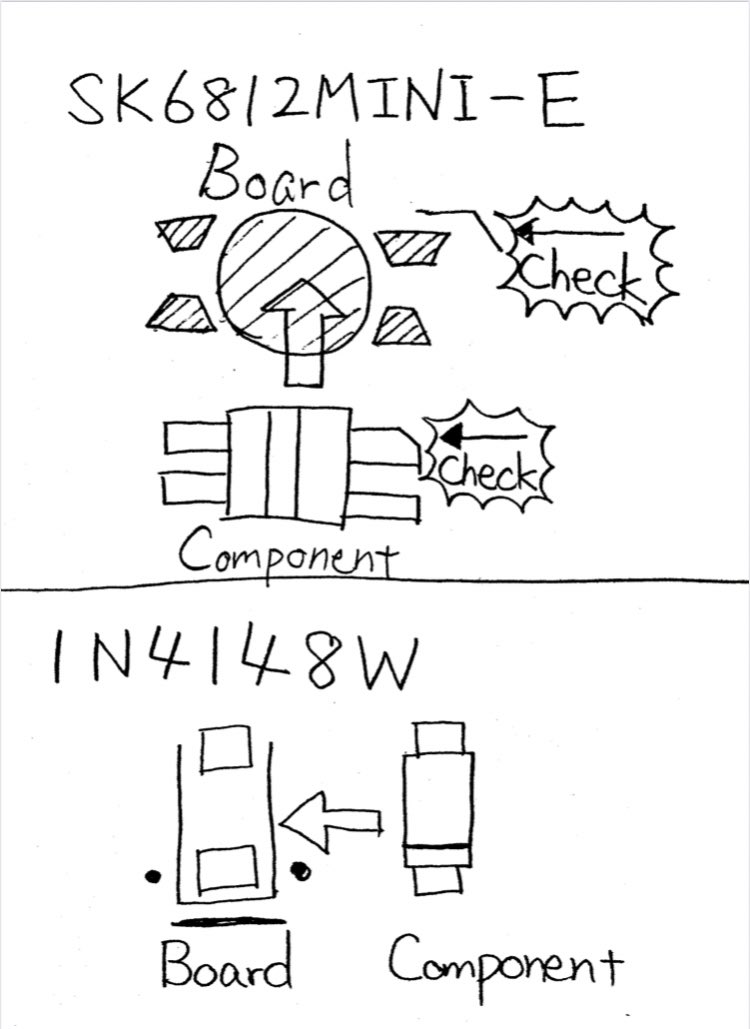 SK6812MINI-E
Board
Check
Check
Component
1N4148W
Board
Component